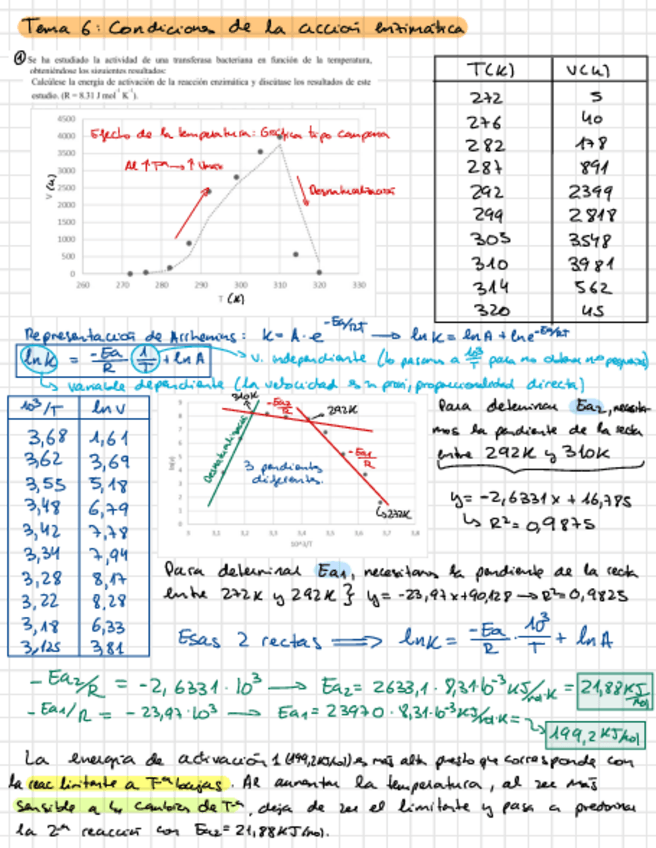 Tema 6: Condiciones de la acción enzimática
① Se ha estudiado la actividad de una transferasa bacteriana en función de la temperatura,
obteniéndose los siguientes resultados:
Calcúlese la energía de activación de la reacción enzimática y discútase los resultados de este
estudio. (R = 8.31 J mol⁻¹ K⁻¹).
T(K) V(u)
272 5
276 40
282 178
287 891
292 2399
299 2818
305 3548
310 3981
314 562
320 45
Efecto de la temperatura: Gráfica tipo campana
Al ↑Tª → ↑ Vmax
Desnaturalización
V (u)
4500
4000
3500
3000
2500
2000
1500
1000
500
0
260 270 280 290 300 310 320 330
T (K)
Representación de Arrhenius: K = A · e^-Ea/RT → ln K = ln A + ln e^-Ea/RT
ln K = -Ea/R · 1/T + ln A → v. independiente (lo pasamos a 10³/T para no obtener nº pequeños)
↳ variable dependiente (la velocidad es proporcionalidad directa)
10³/T ln V
3,68 1,61
3,62 3,69
3,55 5,18
3,48 6,79
3,42 7,78
3,34 7,94
3,28 8,17
3,22 8,28
3,18 6,33
3,125 3,81
310K
-Ea2/R
292K
Desnaturalización
-Ea1/R
3 pendientes
diferentes.
↳ 272K
ln(v)
9
8
7
6
5
4
3
2
1
0
3 3,1 3,2 3,3 3,4 3,5 3,6 3,7 3,8
10^3/T
Para determinar Ea2, necesita-
mos la pendiente de la recta
entre 292K y 310K
y = -2,6331x + 16,785
↳ R² = 0,9875
Para determinar Ea1, necesitamos la pendiente de la recta
entre 272K y 292K } y = -23,97x + 90,128 → R² = 0,9825
Esas 2 rectas ⟹ ln K = -Ea/R · 10³/T + ln A
-Ea2/R = -2,6331 · 10³ → Ea2 = 2633,1 · 8,31·10⁻³ KJ/mol·K = 21,88 KJ/mol
-Ea1/R = -23,97 · 10³ → Ea1 = 23970 · 8,31·10⁻³ KJ/mol·K = ↳ 199,2 KJ/mol
La energía de activación 1 (199,2 KJ/mol) es más alta puesto que corresponde con
la reac limitante a Tª bajas. Al aumentar la temperatura, al ser más
sensible a los cambios de Tª, deja de ser el limitante y pasa a predominar
la 2ª reacción con Ea2 = 21,88 KJ/mol.